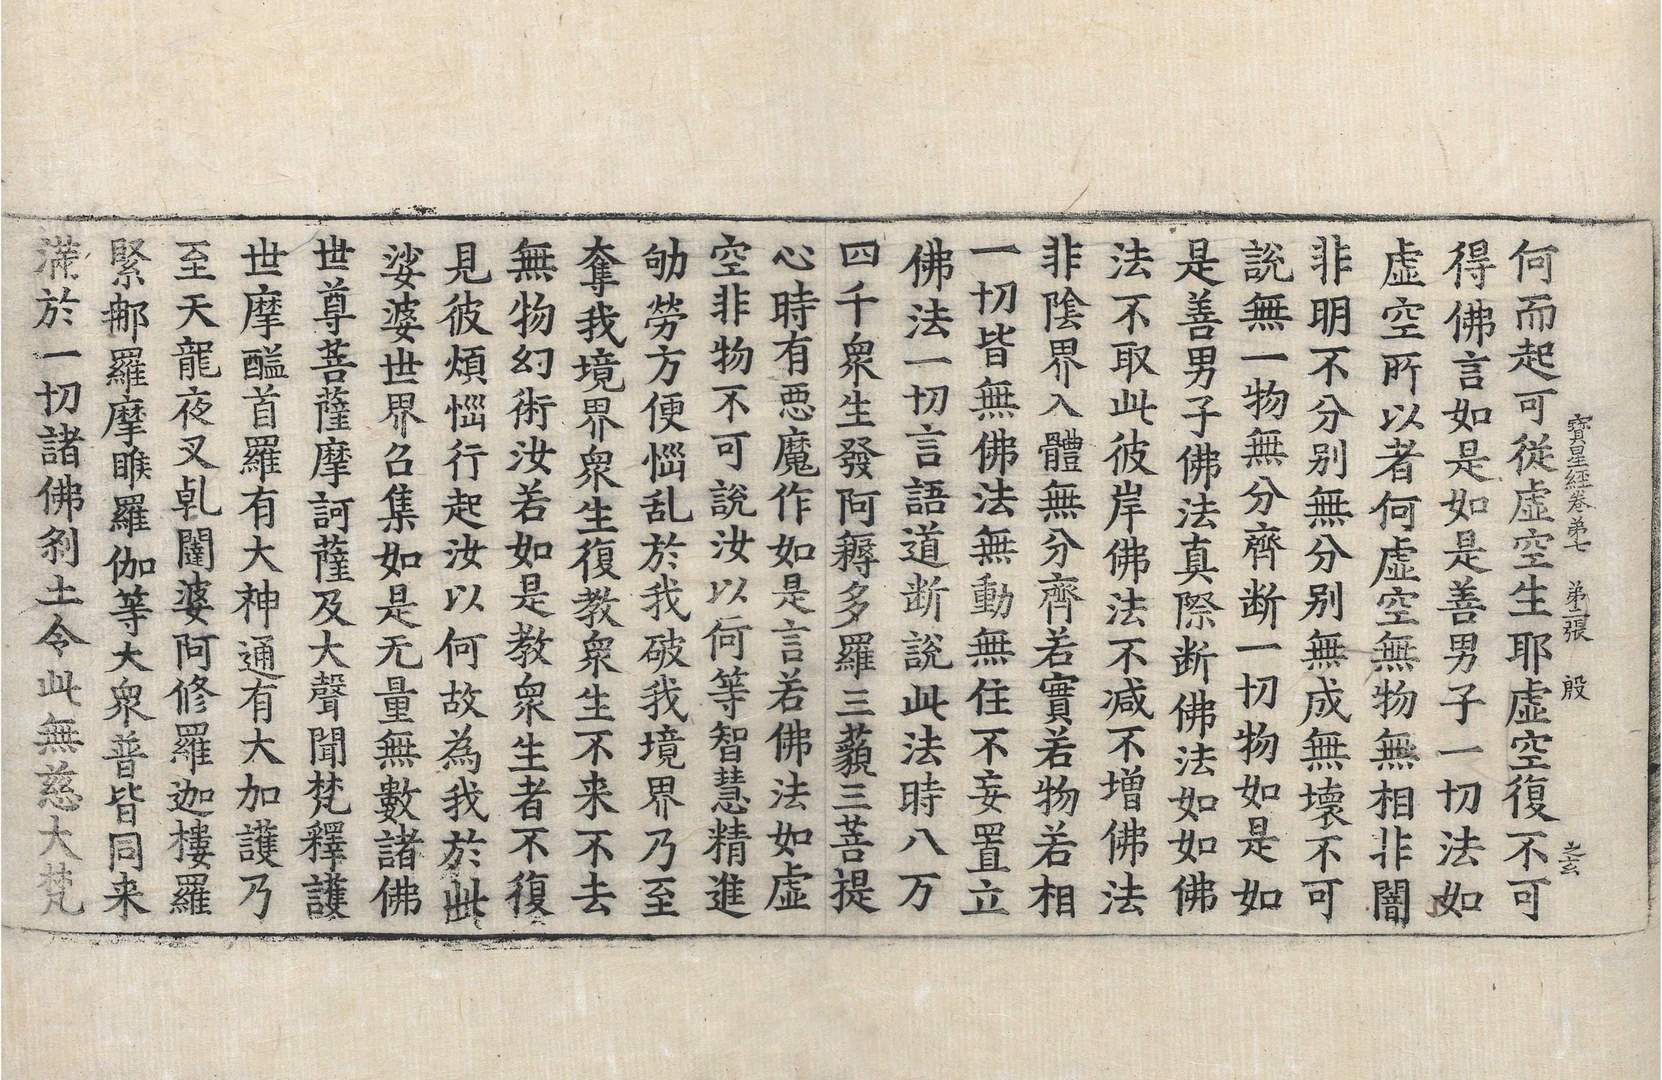 寳星經卷苐七 苐二張 殷 之玄
何而起可從虛空生耶虛空復不可
得佛言如是如是善男子一切法如
虛空所以者何虛空無物無相非闇
非明不分别無分别無成無壞不可
說無一物無分齊断一切物如是如
是善男子佛法真際断佛法如如佛
法不取此彼岸佛法不减不增佛法
非陰界入體無分齊若實若物若相
一切皆無佛法無動無住不妄置立
佛法一切言語道断說此法時八万
四千衆生發阿耨多羅三藐三菩提
心時有惡魔作如是言若佛法如虛
空非物不可說汝以何等智慧精進
劬勞方便惱乱於我破我境界乃至
奪我境界衆生復教衆生不来不去
無物幻術汝若如是教衆生者不復
見彼煩惱行起汝以何故為我於此
娑婆世界召集如是无量無數諸佛
世尊菩薩摩訶薩及大聲聞梵釋護
世摩醯首羅有大神通有大加護乃
至天龍夜叉乹闥婆阿修羅迦樓羅
緊那羅摩睺羅伽等大衆普皆同来
滿於一切諸佛刹土令此無慈大梵